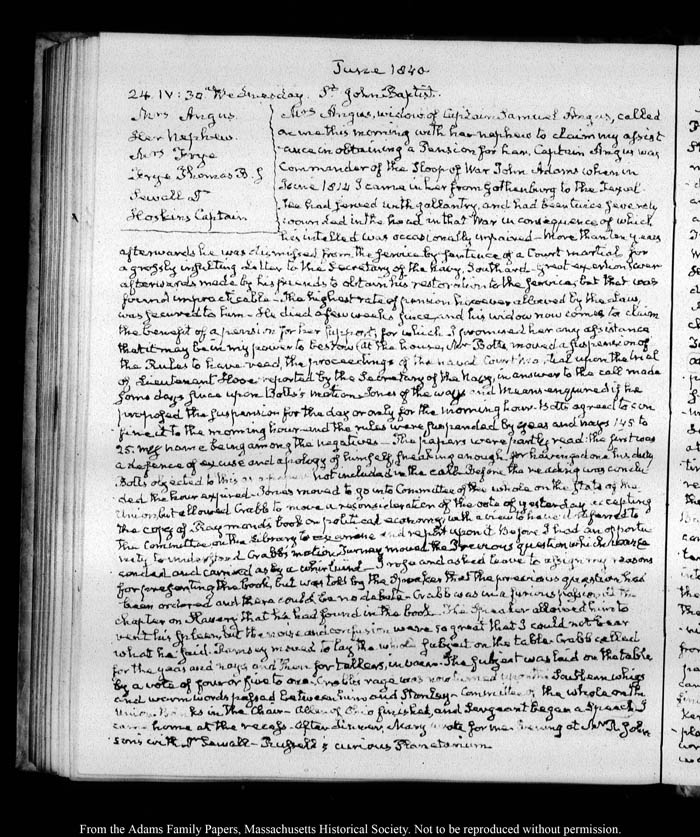 June 1840
24. IV:30. Wednesday. St. John Baptist.
Mrs Angus
Her Nephew
Mrs Frye
Frye Thomas B. J
Sewall Dr
Hoskins Captain
Mrs Angus, widow of Captain Samuel Angus, called
on me this morning with her nephew to claim my assist
ance in obtaining a Pension for her. Captain Angus was
Commander of the Sloop of War John Adams when in
June 1814 I came in her from Gothenburg to the Texel.
He had served with gallantry, and had been twice severely
wounded in the head in that War in consequence of which
his intellect was occasionally impaired - More than ten years
afterwards he was dismissed from the service by sentence of a Court martial for
a grossly insulting Letter to the Secretary of the Navy, Southard - great exertions were
afterwards made by his friends to obtain his restoration to the service, but that was
found impracticable - The highest rate of pension however allowed by the Laws,
was secured to him - He died a few weeks since, and his widow now comes to claim
the benefit of a pension for her support, for which I promised her any assistance
that it may be in my power to bestow. At the house, Mr Botts moved a suspension of
the Rules to have read, the proceedings of the naval Court martial upon the trial
of Lieutenant Hooe reported by the Secretary of the Navy, in answer to the call made
some days since upon Botts's motion. Jones of the ways and Means enquired if he
proposed the suspension for the day or only for the morning hour. Botts agreed to con
fine it to the morning hour and the rules were suspended by yeas and nays 145 to
25. my name being among the negatives - The papers were partly read: the first was
a defence of excuse and apology of himself, sneaking enough, for having done his duty
Botts objected to this as not included in the call. Before the reading was conclu
ded the hour expired. Jones moved to go into Committee of the whole on the State of the
Union, but allowed Crabb to move a reconsideration of the vote of yesterday accepting
the copy of Raymonds book on political economy, with a view to have it referred to
the Committee on the Library to examine and report upon it. Before I had an opportu
nity to understand Crabb's motion Turney moved the Previous question which was se
conded and carried as by a whirlwind - I rose and asked leave to assign my reasons
for presenting the book, but was told by the Speaker that the previous question had
been ordered and there could be no debate - Crabb was in a furious passion, at the
chapter on Slavery that he had found in the book - The Speaker allowed him to
vent his spleen but the noise and confusion were so great that I could not hear
what he said. moved to lay the whole subject on the table. Crabb called
for the yeas and nays and then for tellers, in vain - The subject was laid on the table
by a vote of four or five to one. Crabb's rage was now turned upon the Southern whigs
and warm words passed between him and Stanley - Committee of the whole on the
Union. Banks in the Chair - Allen of Ohio finished, and Sergeant began a Speech. I
came home at the recess - After dinner, Mary wrote for me. Evening at Mr R. John
sons with Dr Sewall - Russell's curious Planetarium
From the Adams Family Papers, Massachusetts Historical Society. Not to be reproduced without permission.